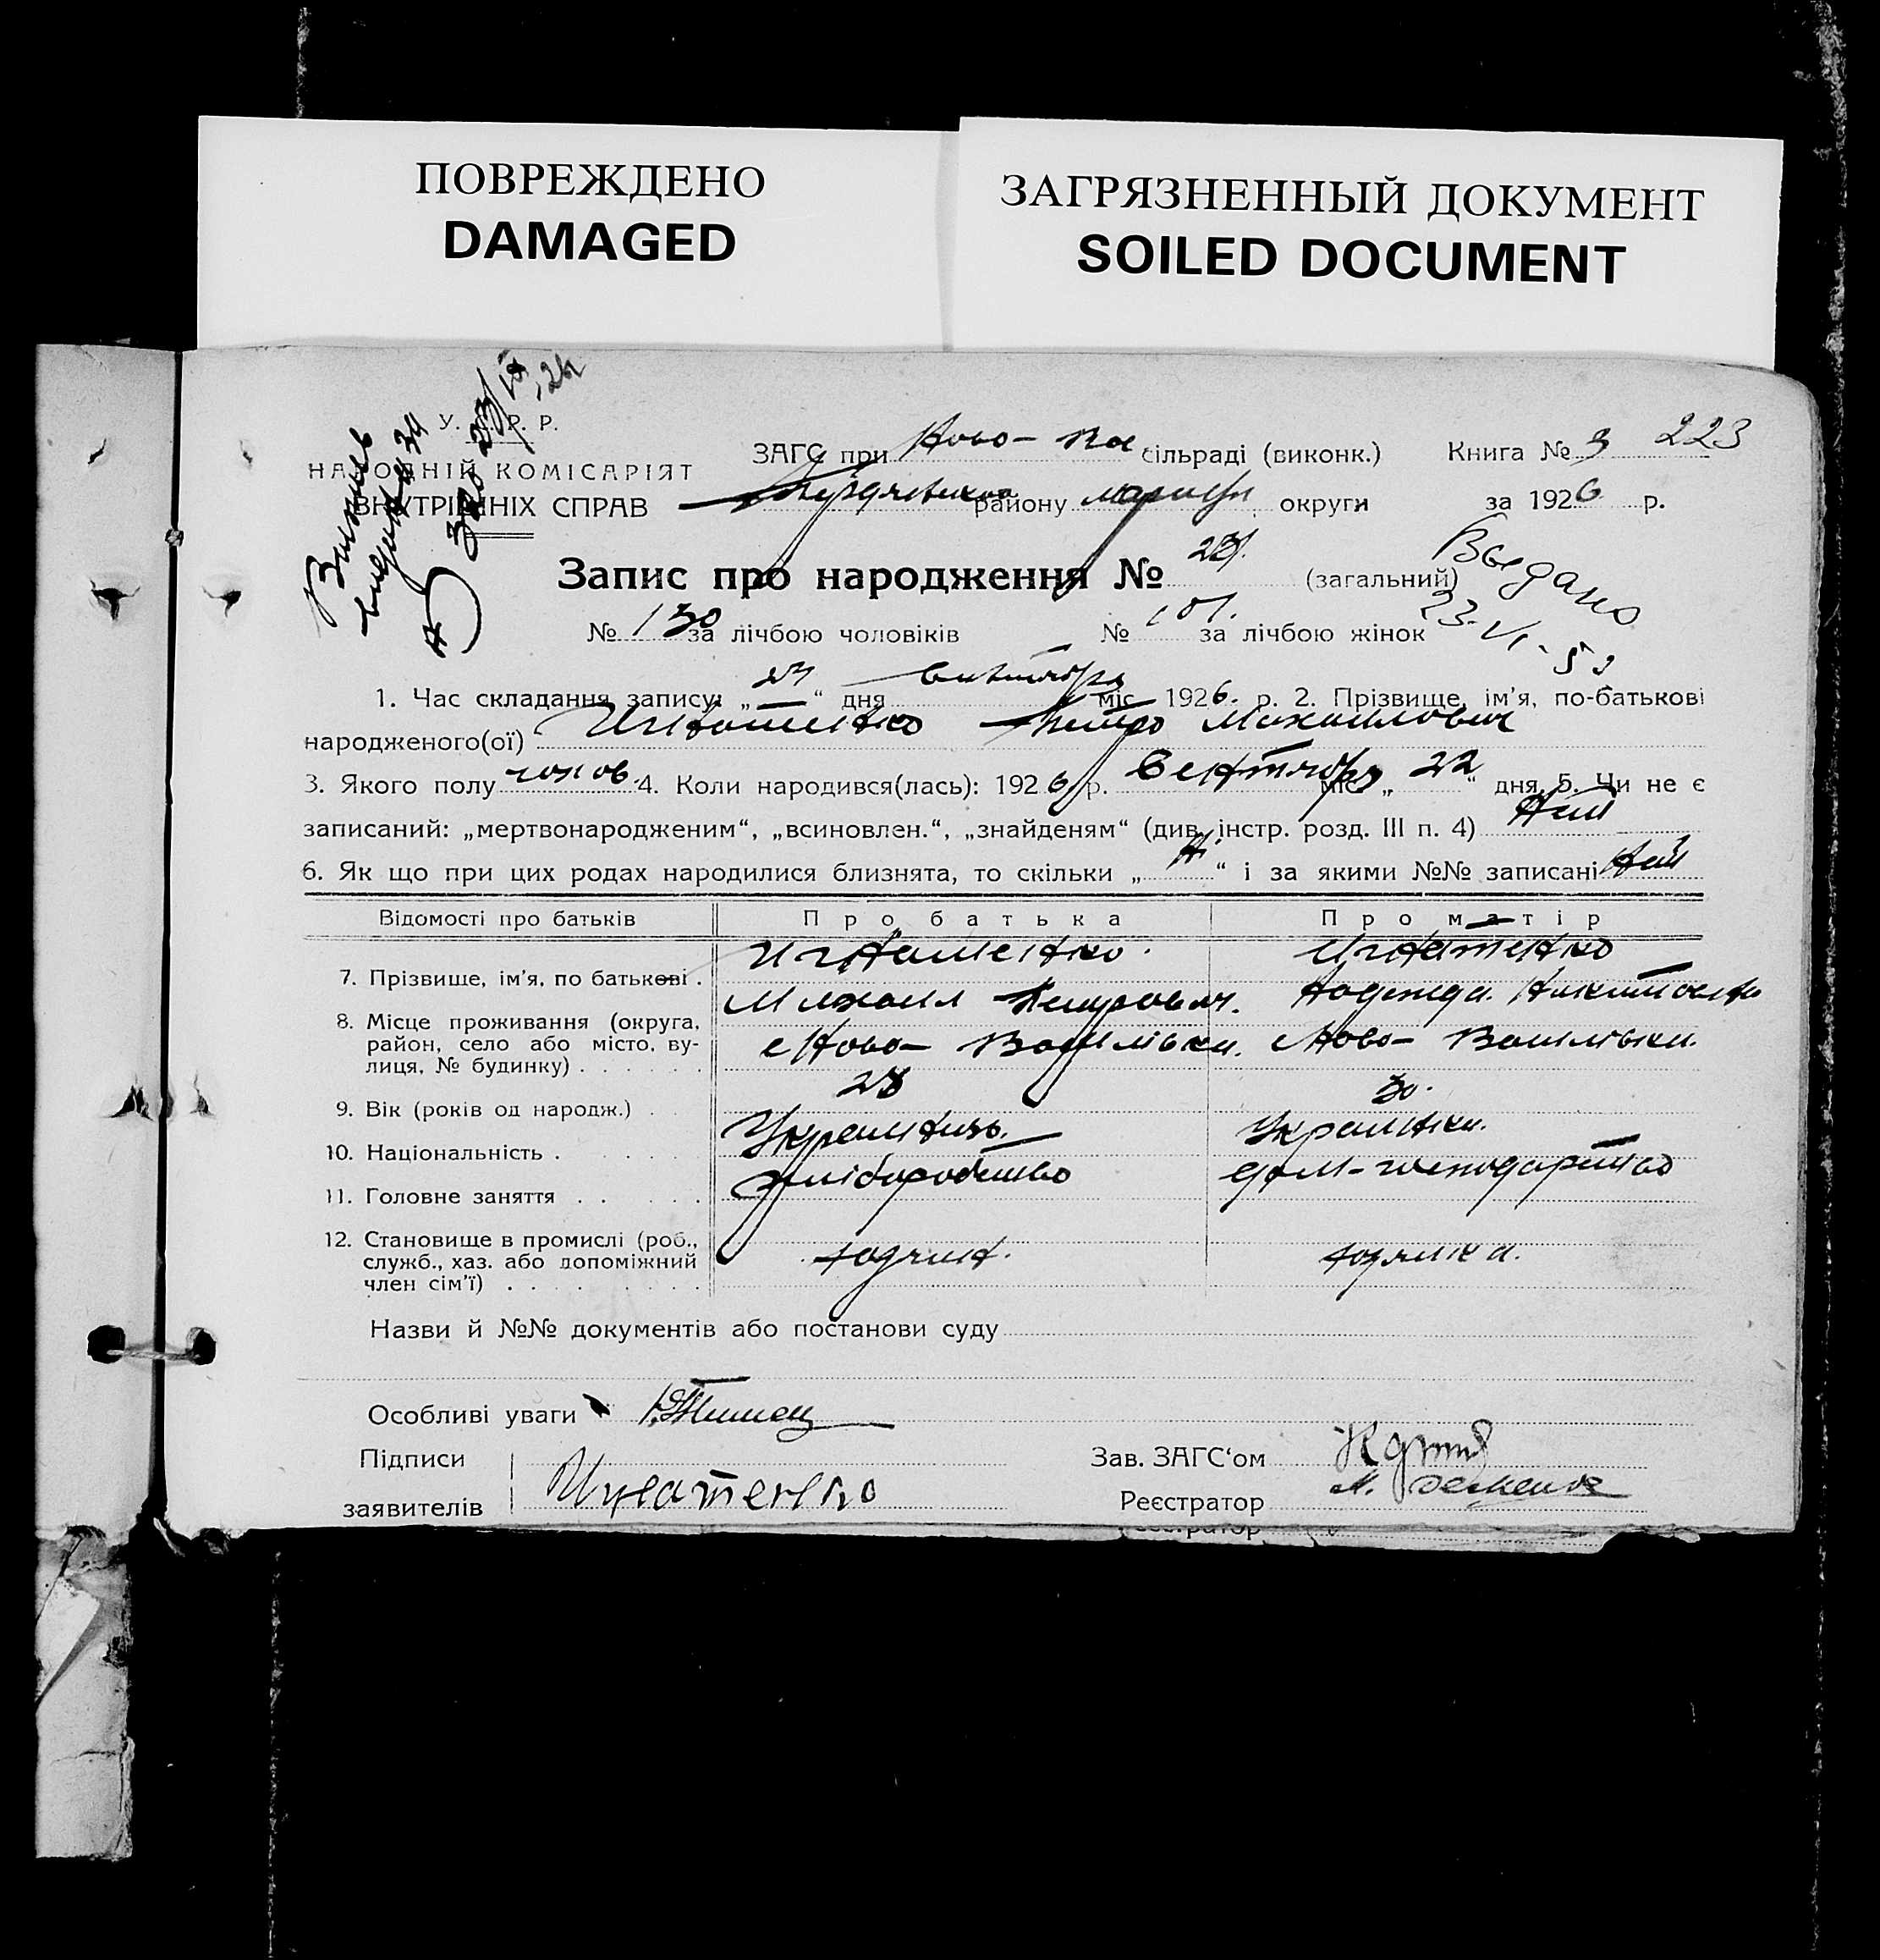 ПОВРЕЖДЕНО
DAMAGED
ЗАГРЯЗНЕННЫЙ ДОКУМЕНТ
SOILED DOCUMENT
У. Р. Р.
НАРОДНІЙ КОМІСАРІЯТ
ВНУТРІШНІХ СПРАВ
ЗАГС при Ново- Вас сільраді (виконк.) Книга № 3 223
району Маріуп. округи за 1926 р.
Выдано
23-VI-53
Запис про народження № 231. (загальний)
№ 130 за лічбою чоловіків № 101. за лічбою жінок
1. Час складання запису: „ 23 “ дня міс. 1926. р. 2. Прізвище, ім’я, по-батькові
народженого(ої) Игнатенко Петро Михаилович
3. Якого полу чолов. 4. Коли народився(лась): 1926 р. Сентября міс. „ 22 “ дня. 5. Чи не є
записаний: „мертвонародженим“, „всиновлен.“, „знайденям“ (див. інстр. розд. III п. 4) Ней
6. Як що при цих родах народилися близнята, то скільки „ “ і за якими №№ записані Ней
Відомості про батьків Про батька Про матір
7. Прізвише, ім’я, по батькові . Игнатенко. Игнатенко
Михаил Петрович. Надежда
8. Місце проживання (округа,
район, село або місто, ву-
лиця, № будинку) . . . . . . с Ново- Василівки. с Ново- Василівки.
9. Вік (років од народж.) . 28 30.
10. Національність . . . . . . Українець. Українка.
11. Головне заняття . . . . . хліборобство дом-господарство
12. Становище в промислі (роб.,
служб., хаз. або допоміжний
член сім’ї) . . . . . . . . .
Назви й №№ документів або постанови суду
Особливі уваги
Підписи Зав. ЗАГС‘ом
заявителів Игнатенко Реєстратор М.